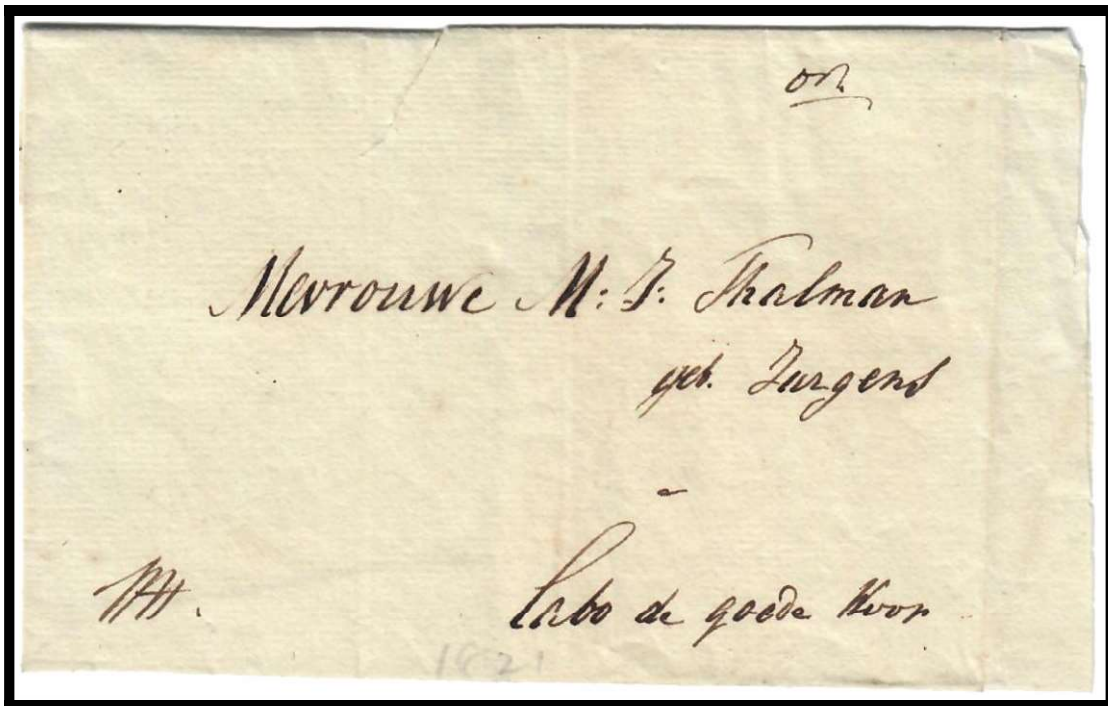 Mevrouwe M: J: Thalman
geb. Jurgens
Cabo de goede Hoop
1821